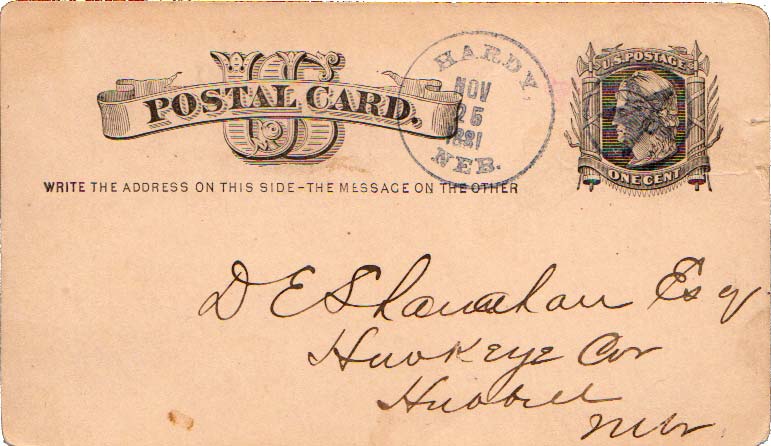 US
POSTAL CARD.
WRITE THE ADDRESS ON THIS SIDE-THE MESSAGE ON THE OTHER
HARDY,
NOV
25
1881
NEB.
U.S. POSTAGE
ONE CENT
D E Shanahan Esq
Hawkeye Cor
Hubbell
Neb